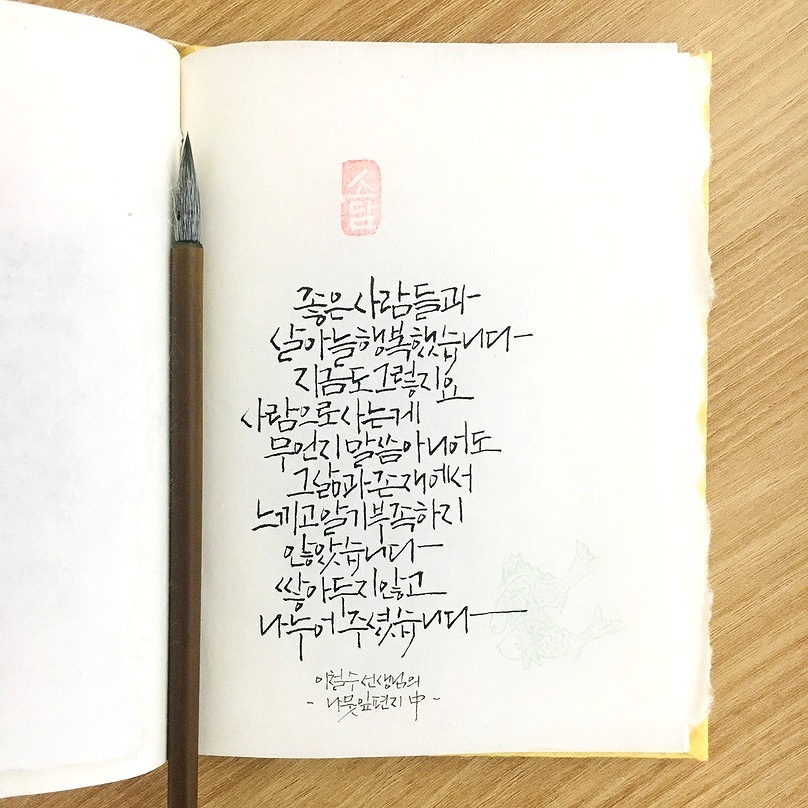 소담
좋은 사람들과
살아 늘 행복했습니다
지금도 그렇지요
사람으로 사는게
무언지 말씀 아니어도
그 삶과 존재에서
느끼고 알기 부족하지
않았습니다
쌓아두지 않고
나누어 주셨습니다
이철수 선생님의
- 나뭇잎 편지 中 -